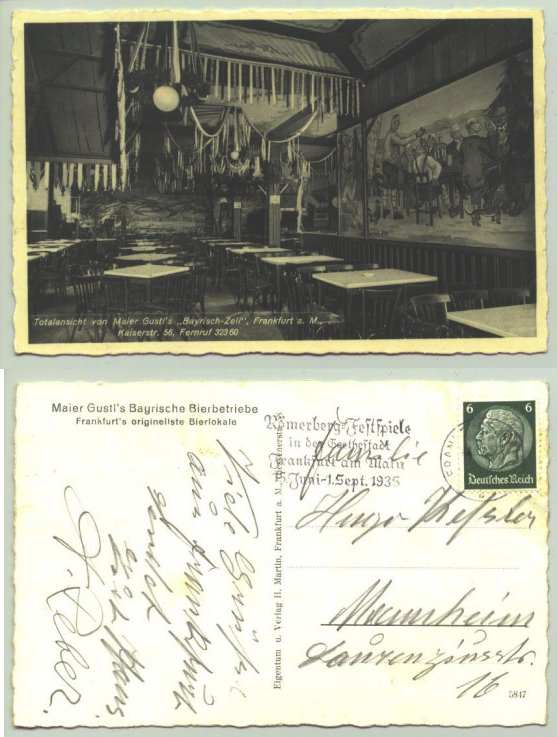 Totalansicht von Maier Gustl's „Bayrisch-Zell", Frankfurt a. M.,
Kaiserstr. 56, Fernruf 32360
Maier Gustl's Bayrische Bierbetriebe
Frankfurt's originellste Bierlokale
Viele Grüße
aus Frankfurt
sendet
euch
Eigentum u. Verlag H. Martin, Frankfurt a. M.
Römerberg-Festspiele
in der Goethestadt
Frankfurt am Main
Juni-1. Sept. 1935
6 6
Deutsches Reich
Familie
Hugo Keßler
Mannheim
Laurenziusstr.
16
5847